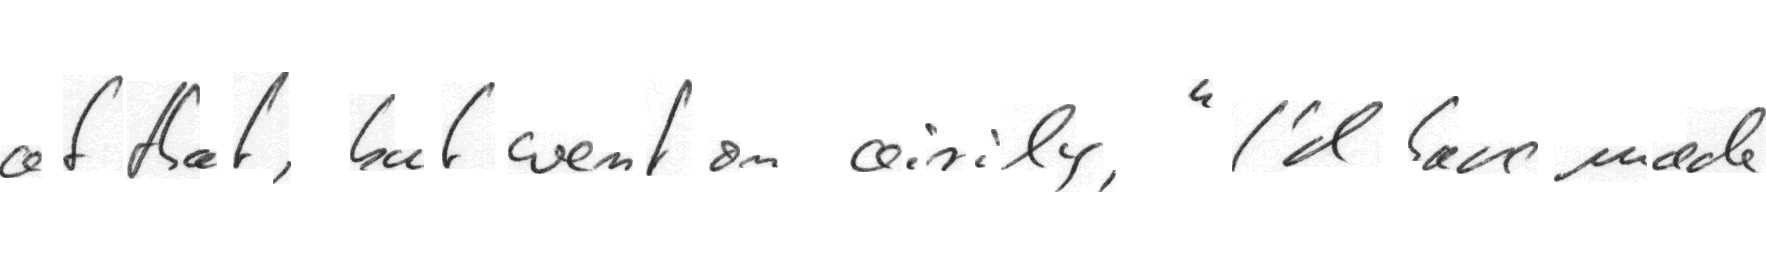 at that, but went on airily, "I'd have made